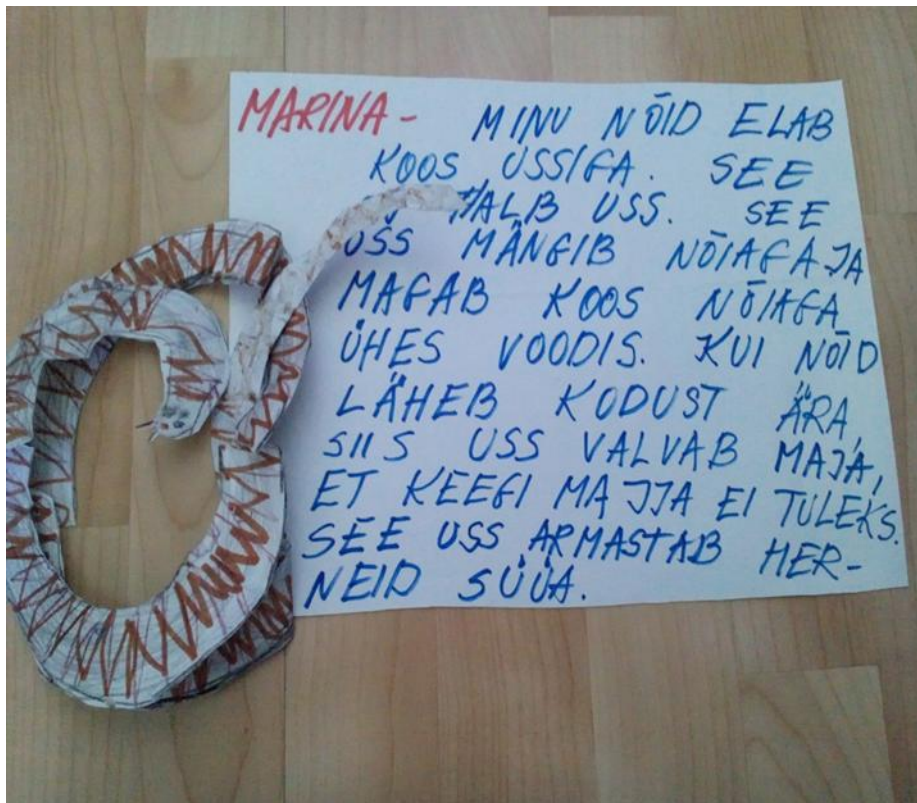 MARINA - MINU NÕID ELAB
KOOS USSIGA. SEE
HALB USS. SEE
USS MÄNGIB NÕIAGA JA
MAGAB KOOS NÕIAGA
ÜHES VOODIS. KUI NÕID
LÄHEB KODUST ÄRA,
SIIS USS VALVAB MAJA,
ET KEEGI MAJJA EI TULEKS.
SEE USS ARMASTAB HER-
NEID SÜÜA.